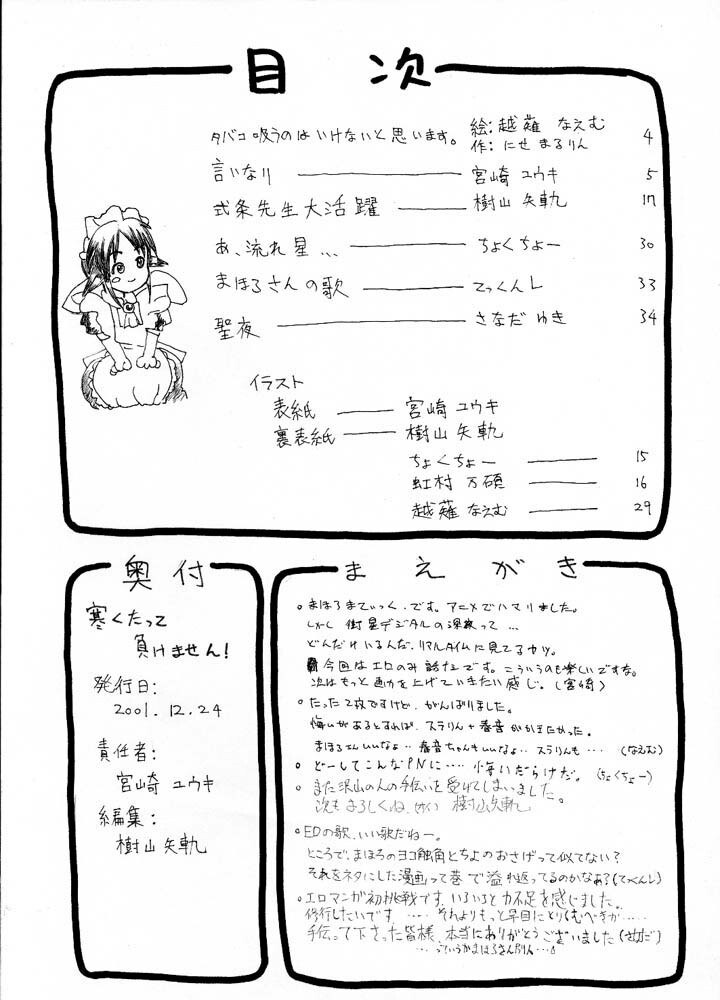 目次
タバコ吸うのはいけないと思います。 絵:越薙 なえむ 作:にせ まるりん 4
言いなり 宮崎 ユウキ 5
式条先生大活躍 樹山 矢軌 17
あ、流れ星... ちょくちょー 30
まほろさんの歌 てっくんL 33
聖夜 さなだ ゆき 34
イラスト
表紙 宮崎 ユウキ
裏表紙 樹山 矢軌
ちょくちょー 15
虹村 万碩 16
越薙 なえむ 29
奥付
寒くたって
負けません!
発行日:
2001.12.24
責任者:
宮崎 ユウキ
編集:
樹山 矢軌
まえがき
○まほろまてぃっく.です。アニメでハマりました。
しかし衛星デジタルの深夜って...
どんだけいるんだ、リアルタイムに見てるヤツ。
今回はエロのみ話です。こういうのも楽しいですな。
次はもっと画力を上げていきたい感じ。(宮崎)
○たった2枚ですけど、がんばりました。
悔いがあるとすれば、スラりん+春音がかきたかった。
まほろさんいいなょ‥春音ちゃんもいいなょ‥スラりんも‥‥ (なえむ)
○どーしてこんなPNに‥‥悔いだらけだ。(ちょくちょー)
○また沢山の人の手伝いを受けてしまいました。
次もよろしくね、 樹山矢軌
○EDの歌、いい歌だねー。
ところで、まほろのヨコ触角とちよのおさげって似てない?
それをネタにした漫画って巷で溢れ返ってるのかなぁ?(てっくんL)
○エロマンガ初挑戦です。いろいろと力不足を感じました。
修行したいです ‥‥ それよりもっと早目にとりくむべきが‥‥‥
手伝って下さった皆様、本当にありがとうございました(さなだ)
‥‥っていうかまほろさん